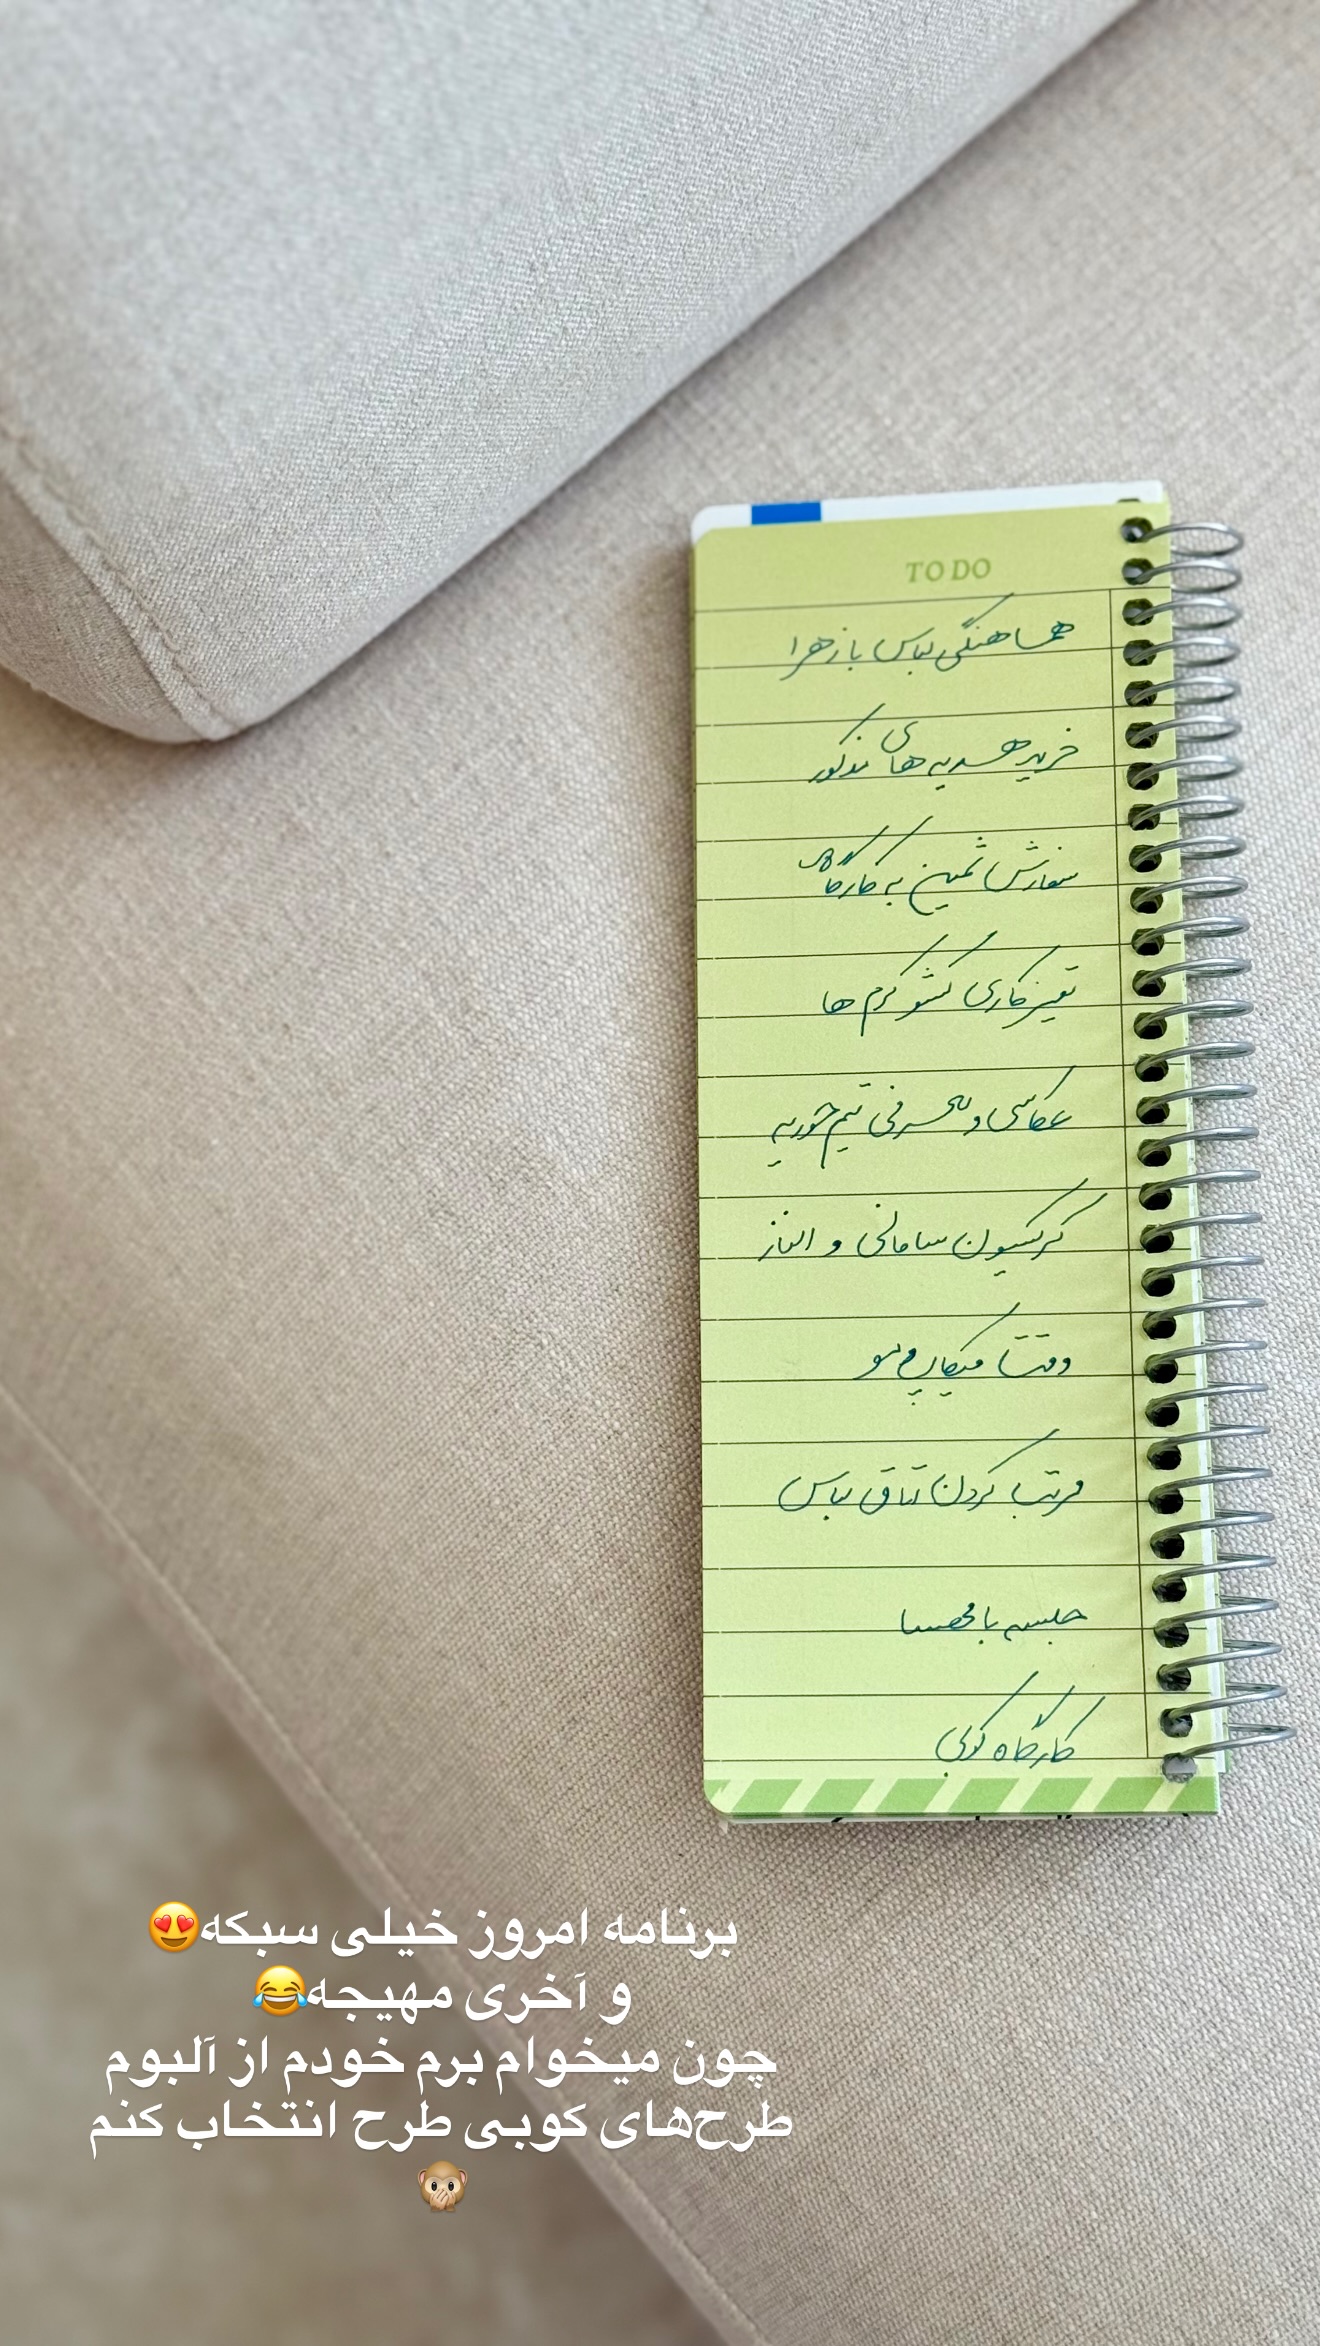 TO DO
هماهنگی لباس با زهرا
خرید هدیه های مذکور
سفارش ثمین به کارگاه
تمیزکاری کشو کرم ها
عکاسی و معرفی تیم حوریه
کرکسیون سامانی و الناز
وقت میکاپ و مو
مرتب کردن اتاق لباس
جلسه با مهسا
کارگاه کوبی
برنامه امروز خیلی سبکه😍
و آخری مهیجه😂
چون میخوام برم خودم از آلبوم
طرح‌های کوبی طرح انتخاب کنم
🙊